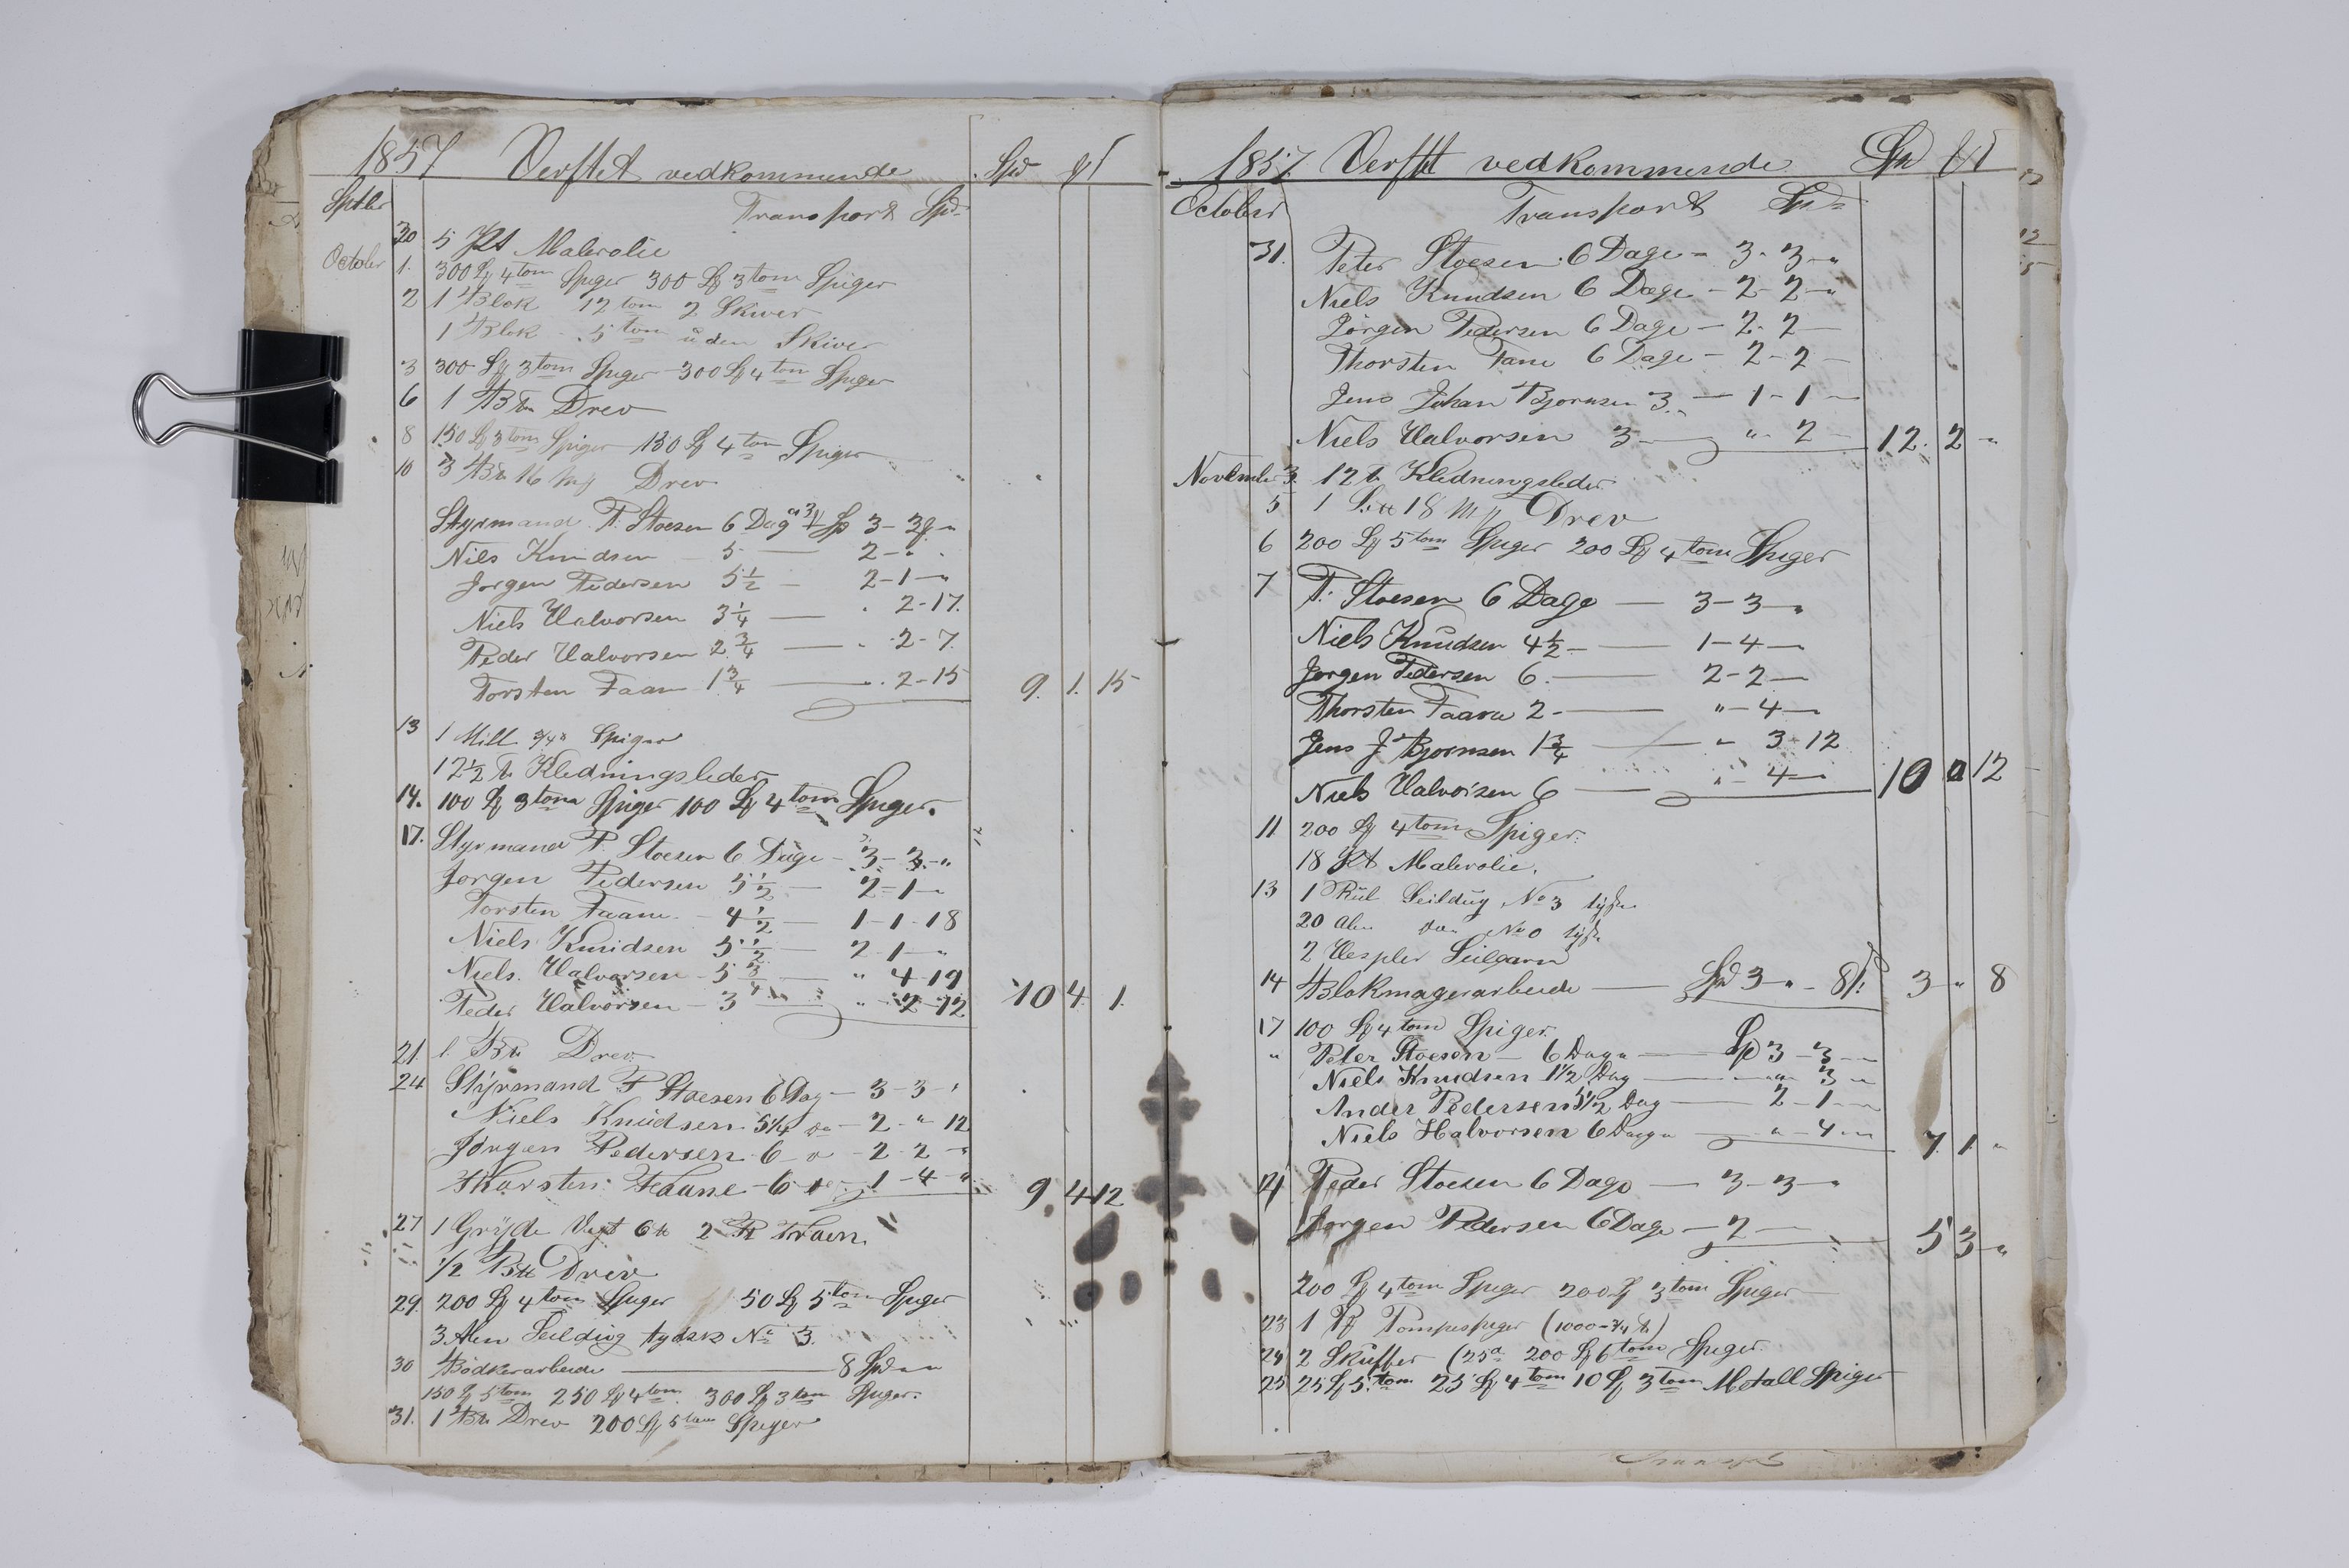 1857 Verftet vedkommende Spd
Septbr Transport Spd
30 5 Pot Malerolie
October 1. 300 4 tom Spiger 300 3 tom Spiger
2 1 Blok 12 tom 2 Skiver
1 Blok 5 tom uden Skiver
3 300 3 tom Spiger 300 4 tom Spiger
6 1 Drev
8 150 3 tom Spiger 150 4 tom Spiger
10 3 16 Drev
Styrmand P. Stoesen 6 Dag 3 - 3
Niels Knudsen 5 — 2 - "
Jorgen Pedersen 5½ — 2 - 1 - "
Niels Halvorsen 3¼ — . 2 - 17.
Peder Halvorsen 2¾ — . 2 - 7.
Torsten Faan 1¾ — . 2 - 15 9. 1. 15
13 1 Mill 3/4" Spiger
12½ Kledningsleder
14. 100 3 tom Spiger 100 4 tom Spiger.
17. Styrmand P. Stoesen 6 Dage - 3 - 3 - "
Jorgen Pedersen 5½ — 2 - 1 -
Torsten Faane - 4½ — 1 - 1 - 18
Niels Knudsen 5½ — 2 - 1 - "
Niels Halvorsen - 5¾ — " 4 - 19
Peder Halvorsen - 3 — " - 2 - 12 10 4 1.
21. 1 Drev
24 Styrmand P Stoesen 6 Dag - 3 - 3 - "
Niels Knudsen 5¼ do - 2 - " 12
Jørgen Pedersen 6 - 2 - 2 - "
Thorsten Faane - 6 1 - 4 - " 9. 4 12
27 1 Gryde Vegt 6 2 Traen.
1/2 Drev
29. 200 4 tom Spiger 50 5 tom Spiger
3 Alen Seildug tydsk No 3.
30 Bødkerarbeide — 8 Spd
150 5 tom 250 4 tom 300 3 tom Spiger.
31. 1 Drev 200 5 tom Spiger
1857. Verftet vedkommende Spd
October Transport Spd
31. Peter Stoesen 6 Dage - 3 - 3 - "
Niels Knudsen 6 Dage - 2 - 2 - "
Jörgen Pedersen 6 Dage - 2 - 2 —
Thorsten Fane 6 Dage - 2 - 2 —
Jens Johan Bjornsen 3 — 1 - 1 —
Niels Halvorsen 3 — " - 2 — 12. 2 "
November 3. 12 Kledningsleder
5 1 18 Drev
6 200 5 tom Spiger 200 4 tom Spiger
7 P. Stoesen 6 Dage — 3 - 3 - "
Niels Knudsen 4½ — 1 - 4 —
Jorgen Pedersen 6. — 2 - 2 —
Thorsten Faana 2 - — " - 4 —
Jens J Bjornsen 1¾ — " 3 - 12
Niels Halvorsen 6 — " - 4 — 10 0 12
11. 200 4 tom Spiger.
18 Pot Malerolie.
13 1 Rul Seildug No 3
20 Alen do No 0
2 Hespler Seilgarn
14 Blokmagerarbeide — Spd 3 - " - 8 3 " 8
17 100 4 tom Spiger
" Peter Stoesen - 6 Dage — Sp 3 - 3 —
Niels Knudsen 1½ Dag — " 3 —
Ander Pedersen 5½ Dag — 2 - 1 —
Niels Halvorsen 6 Dage — " - 4 — 7. 1. "
21 Peder Stoesen 6 Dage — 3 - 3 - "
Jorgen Pedersen 6 Dage - 2 — 5 3 "
200 4 tom Spiger 200 3 tom Spiger
23 1 Pompespiger (1000 - 3/4 )
24 2 Skuffer (25d 200 6 tom Spiger
25 25 5 tom 25 4 tom 10 3 tom Metall Spiger